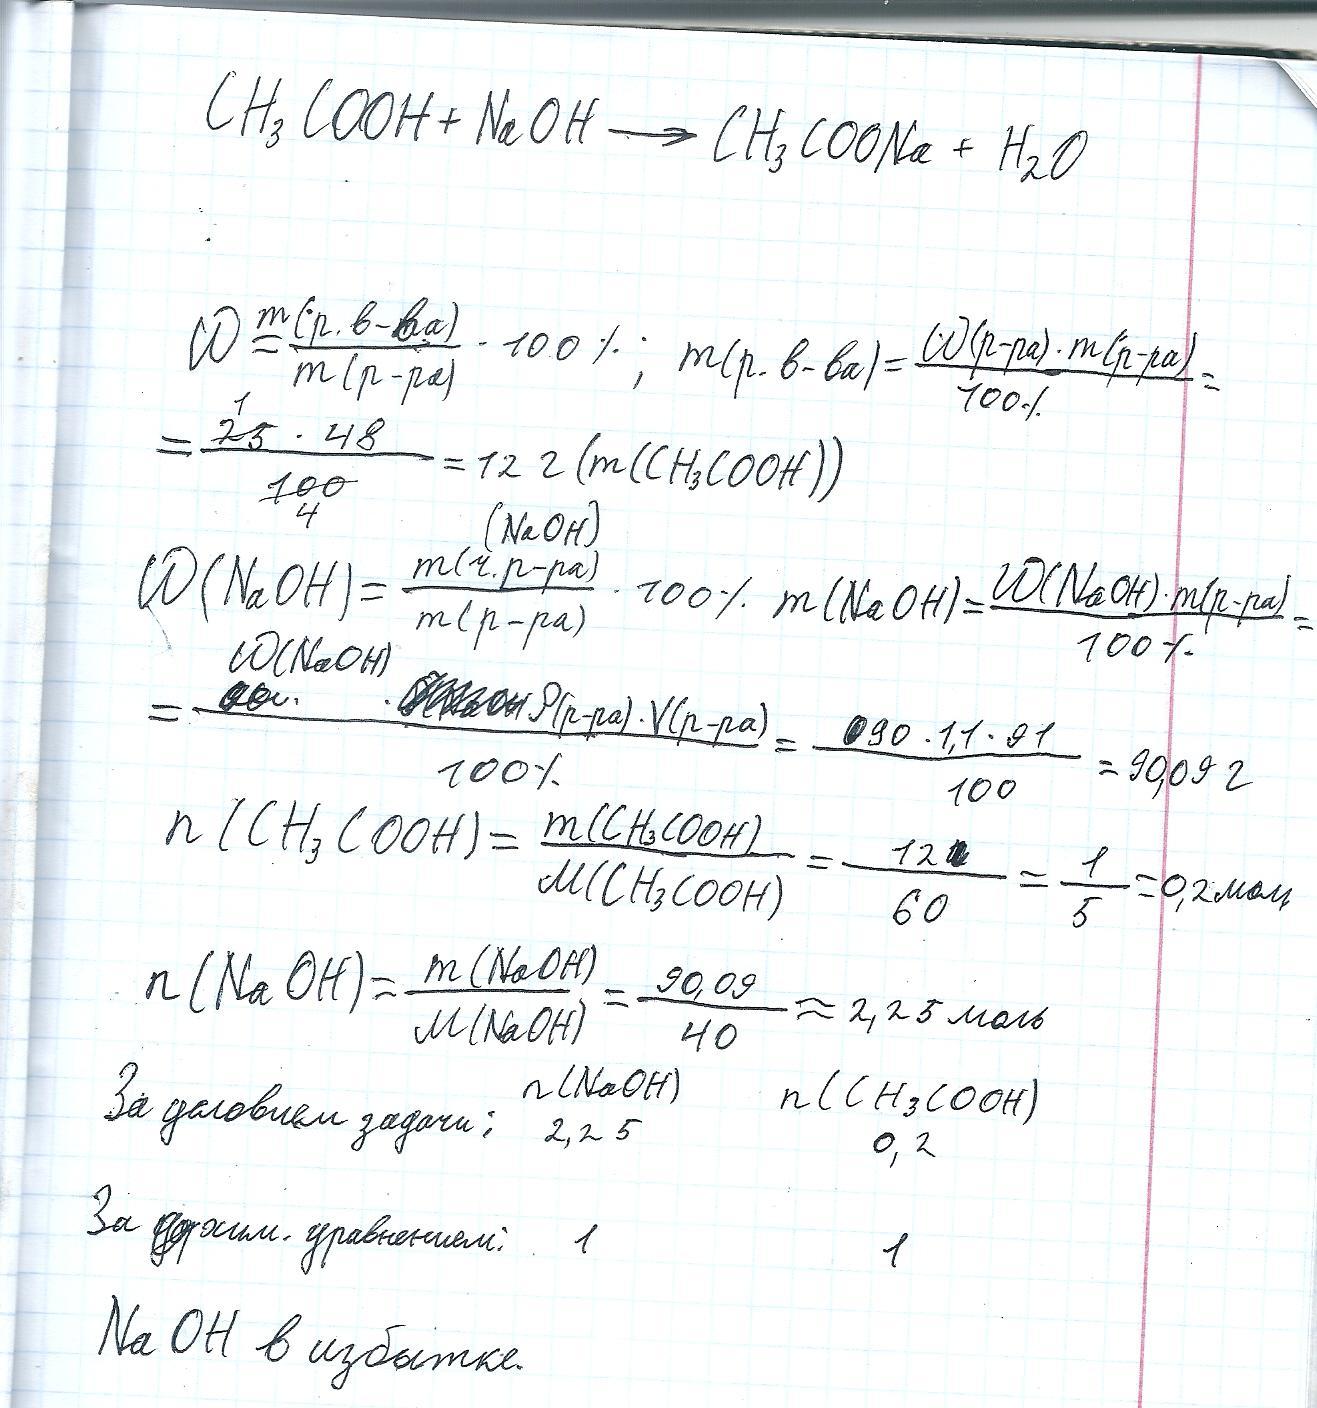 CH₃COOH + NaOH → CH₃COONa + H₂O
ω = m(р. в-ва) / m(р-ра) · 100 %; m(р. в-ва) = ω(р-ра) · m(р-ра) / 100% =
= 25 · 48 / 100 = 12 г (m(CH₃COOH))
1
4
(NaOH)
ω(NaOH) = m(ч. р-ра) / m(р-ра) · 100% m(NaOH) = ω(NaOH) · m(р-ра) / 100% =
= ω(NaOH) · ρ(р-ра) · V(р-ра) / 100% = 90 · 1,1 · 91 / 100 = 90,09 г
n(CH₃COOH) = m(CH₃COOH) / M(CH₃COOH) = 12 / 60 = 1 / 5 = 0,2 моль
n(NaOH) = m(NaOH) / M(NaOH) = 90,09 / 40 ≈ 2,25 моль
n(NaOH) n(CH₃COOH)
За условием задачи: 2,25 0,2
За хим. уравнением: 1 1
NaOH в избытке.